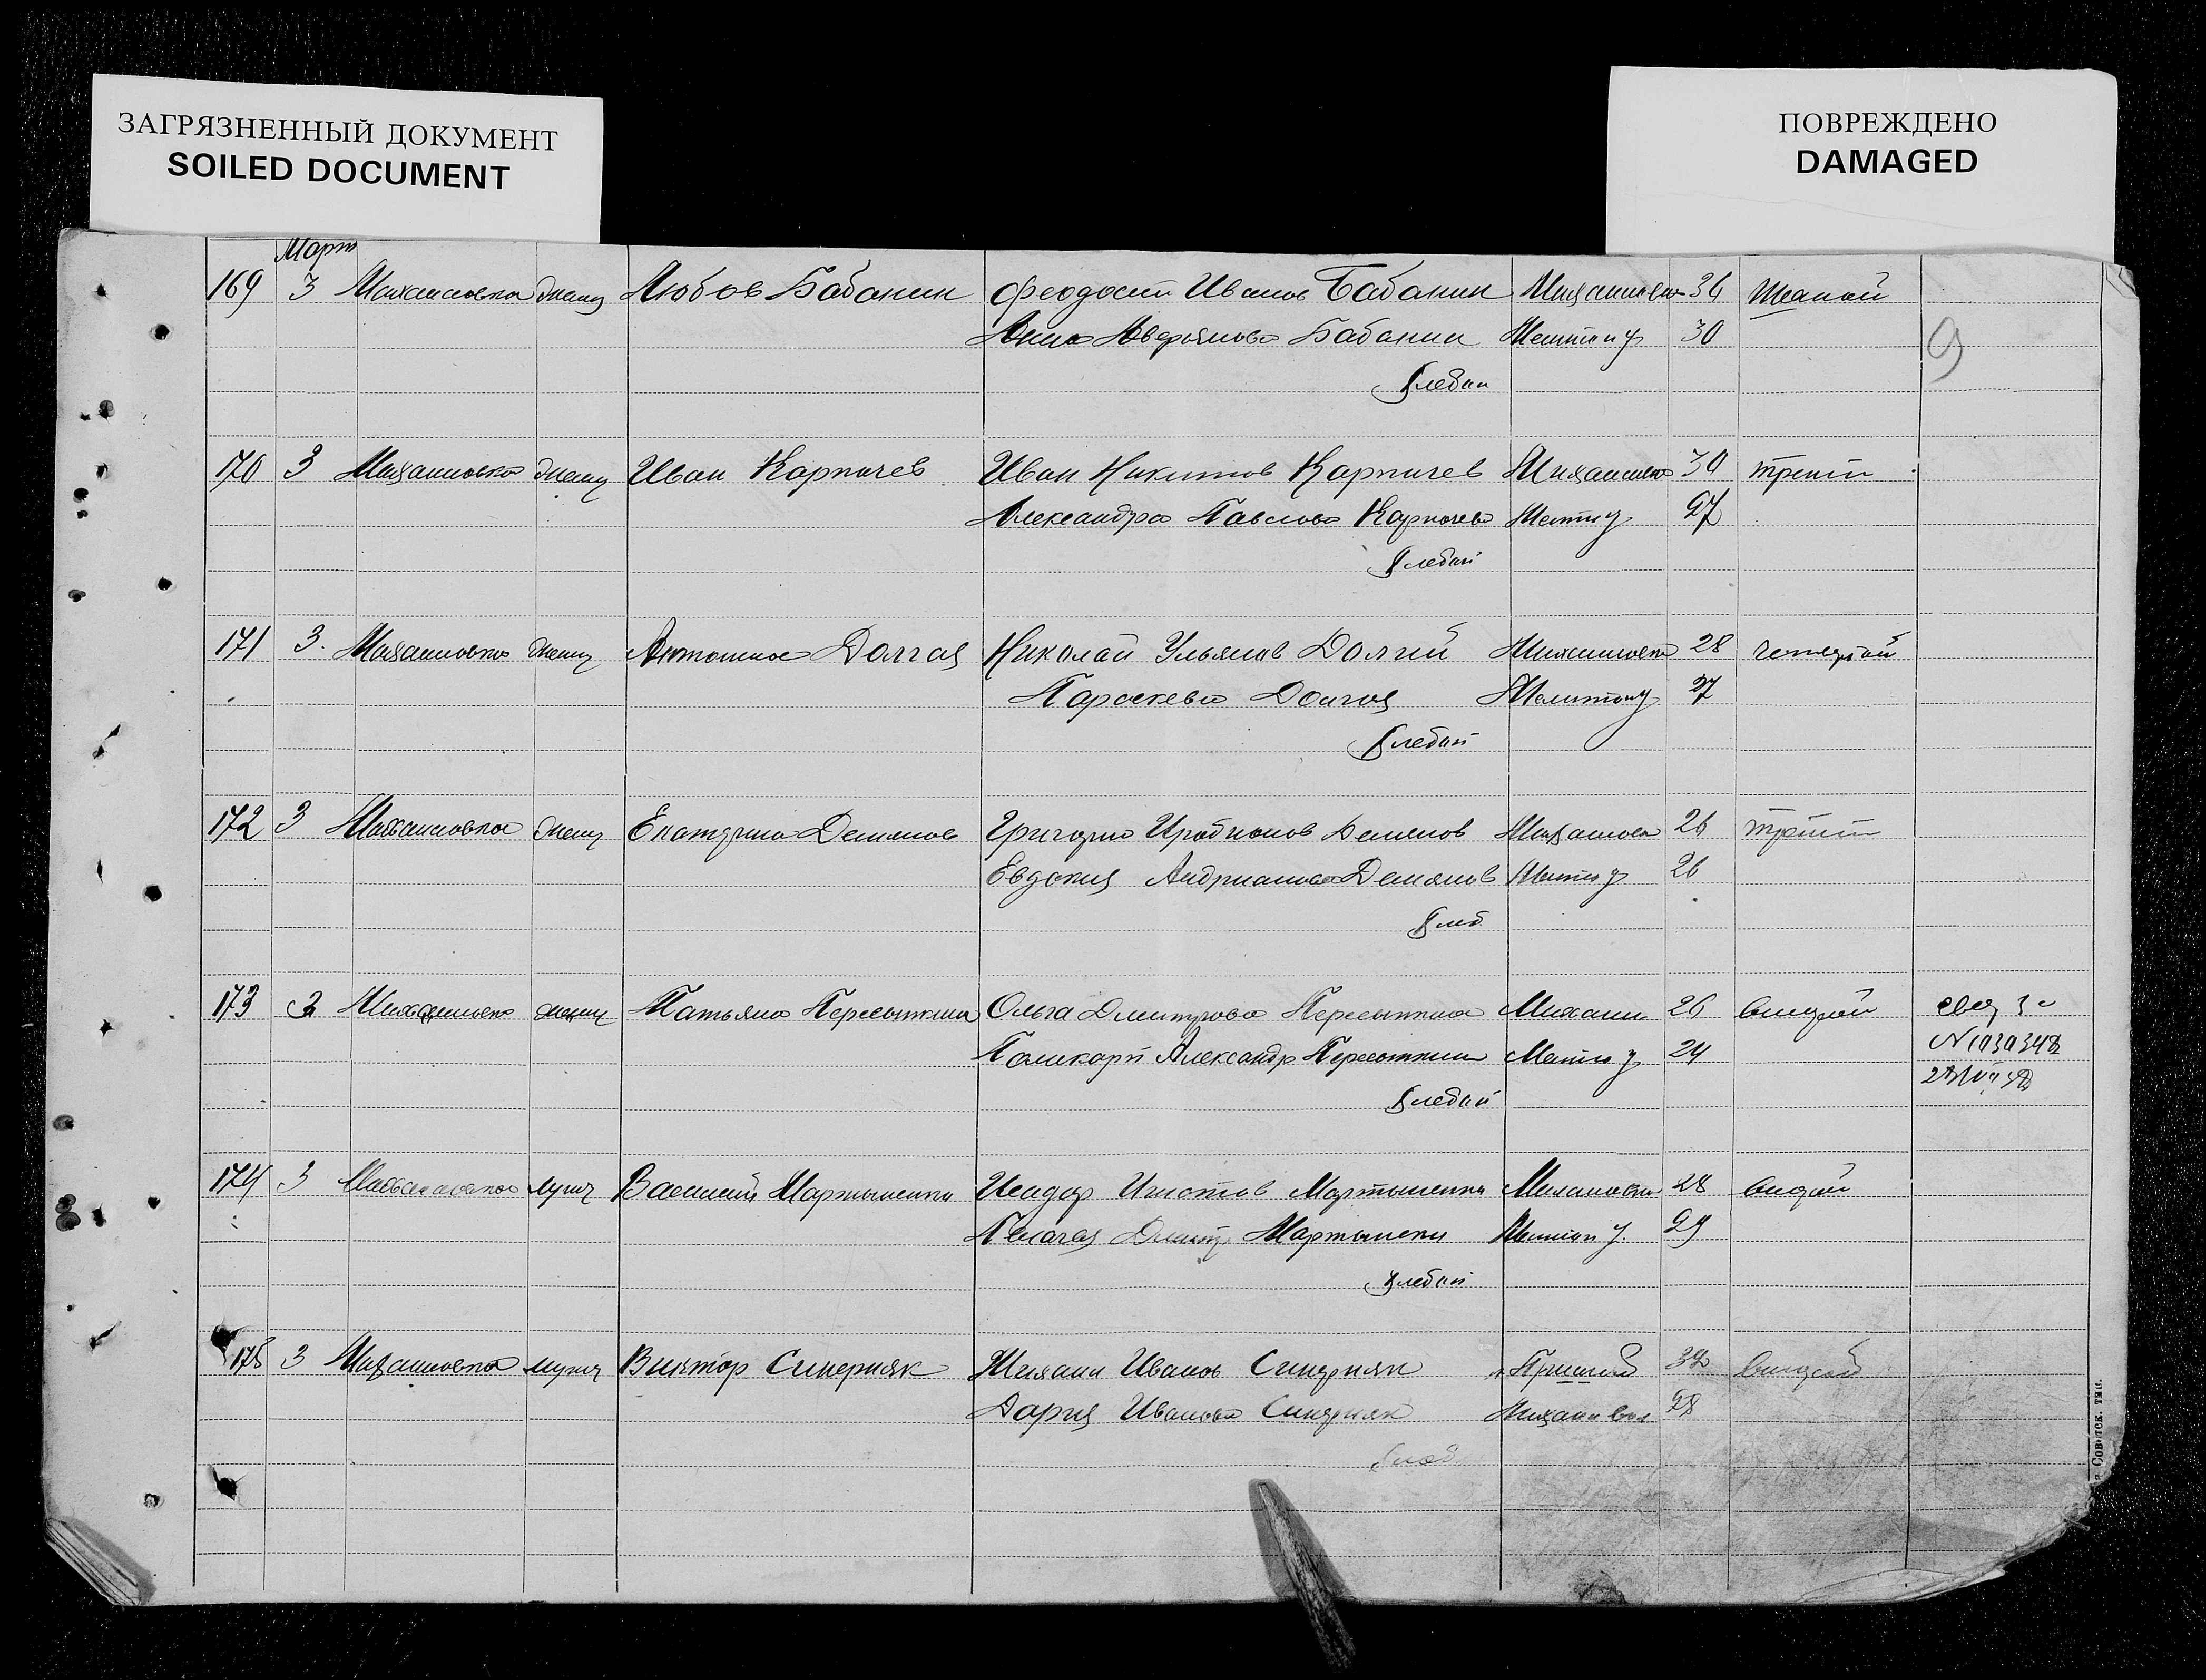 ЗАГРЯЗНЕННЫЙ ДОКУМЕНТ
SOILED DOCUMENT
ПОВРЕЖДЕНО
DAMAGED
Март
169 3 Михаиловка женщ Любов Бабанин Феодосий Иванов Бабанин Михаиловка 36 шестой
Анна Аверьянова Бабанин Мелитоп у 30
9
хлебоп
170 3 Михаиловка женщ Иван Карпачев Иван Никитов Карпачев Михаиловка 30 третий
Александра Павлова Карпачева Мелит у 27
хлебоп
171 3. Михаиловка женщ Антонина Долгая Николай Ульянов Долгий Михаиловка 28 четвертый
Параскева Долгая Мелитоп у 27
хлебоп
172 3 Михаиловка женщ Екатерина Деманов Григорий Деманов Михаиловка 26 третий
Евдокия Андрианова Деманов Мелит у 26
хлеб
173 3 Михаиловка женщ Татьяна Пересыпкина Ольга Дмитрова Пересыпкина Михаил 26 второй
Поликарп Александр Пересыпкин Мелит у 24
хлебоп
174 3 Михаиловка мужч Василий Мартыненко Исидор Мартыненко Михаиловка 28 второй
Пелагея Дмитр Мартыненко Мелитоп у. 29
хлебоп
175 3 Михаиловка мужч Виктор Синерняк Михаил Иванов Синерняк 32 второй
Дария Иванова Синерняк Михаиловка 28
хлеб
Советск. тип.